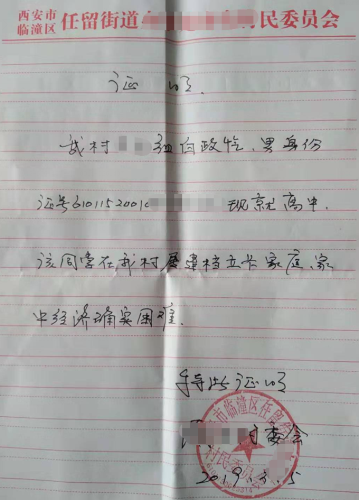 西安市
临潼区 任留街道 村民委员会
证 明
我村 组 政 , 男 身份
证号61011520010 现就高中.
该同学在我村 建档立卡家庭, 家
中经济确实困难.
特此证明
村委会
2019.3.5
西安市临潼区任留
村民委员